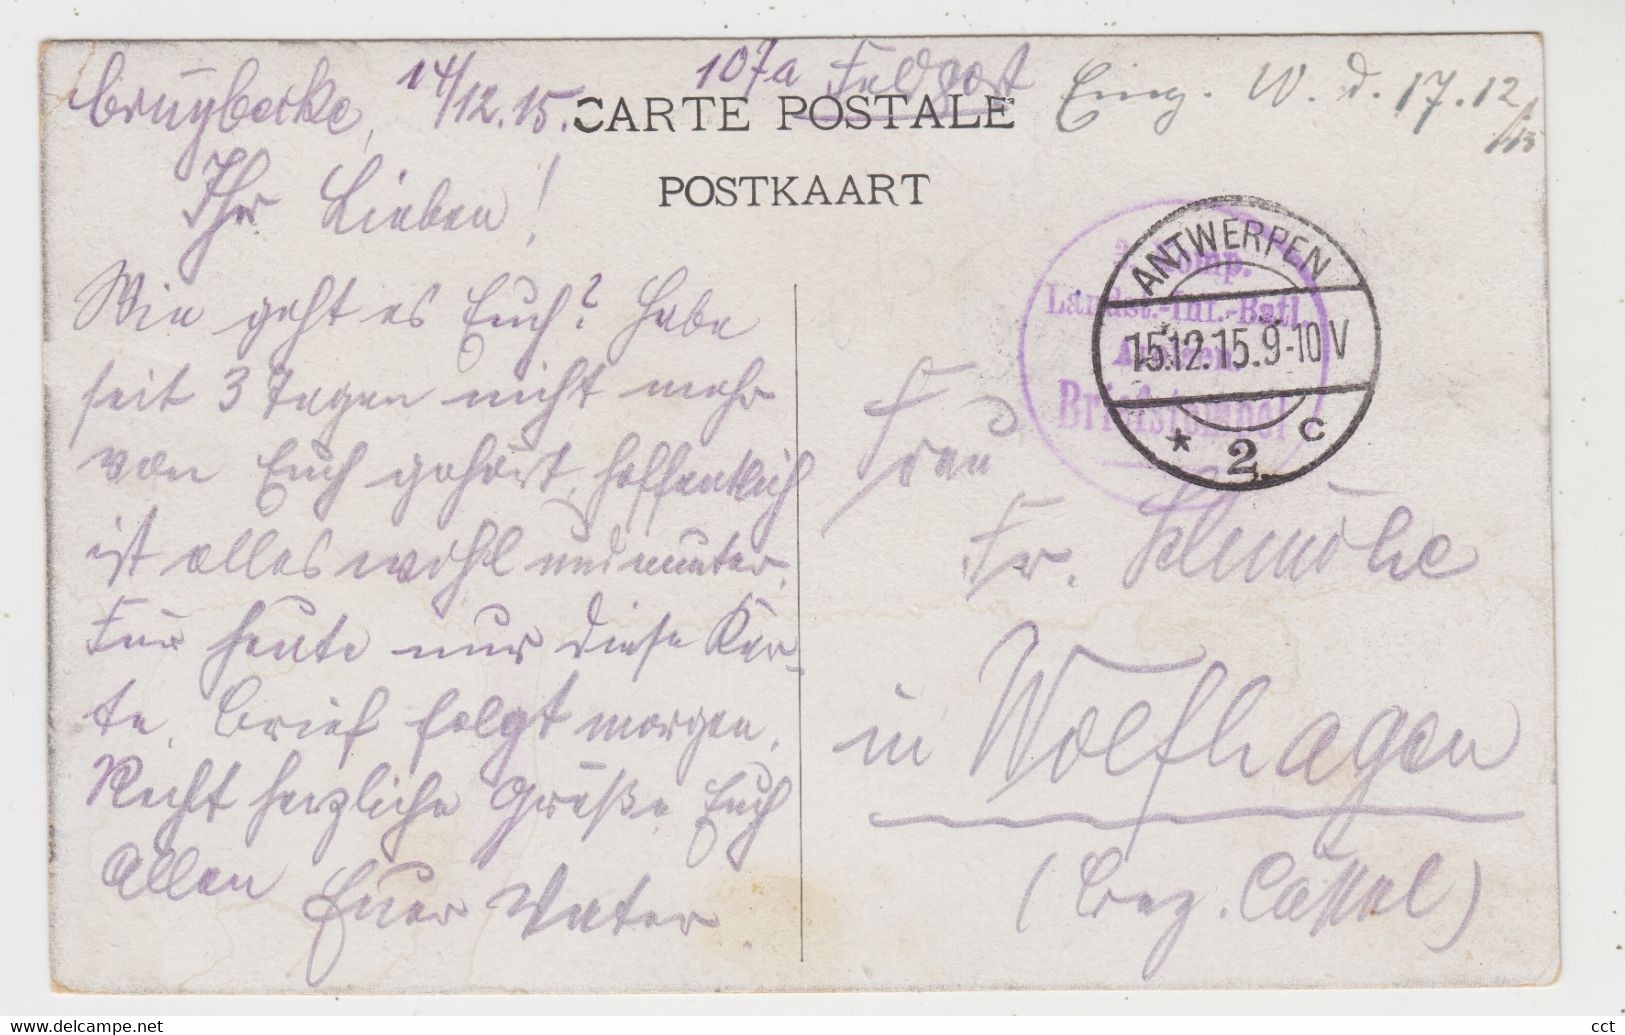 Cruybecke, 14/12.15. 107a Feldpost
CARTE POSTALE
POSTKAART
Eing. W. d. 17.12
Ihr Lieben!
Wie geht es Euch? Habe
seit 3 Tagen nicht mehr
von Euch gehört, hoffentlich
ist alles wohl und munter.
Für heute nur diese Kar-
te, Brief folgt morgen.
Recht herzliche Grüße Euch
Allen Euer Vater
ANTWERPEN
15.12.15.9-10V
* 2 c
Komp.
Landst.-Inf.-Batl.
Briefstempel
Frau
Fr.
in Wolfhagen
(Bez. Cassel)
cct